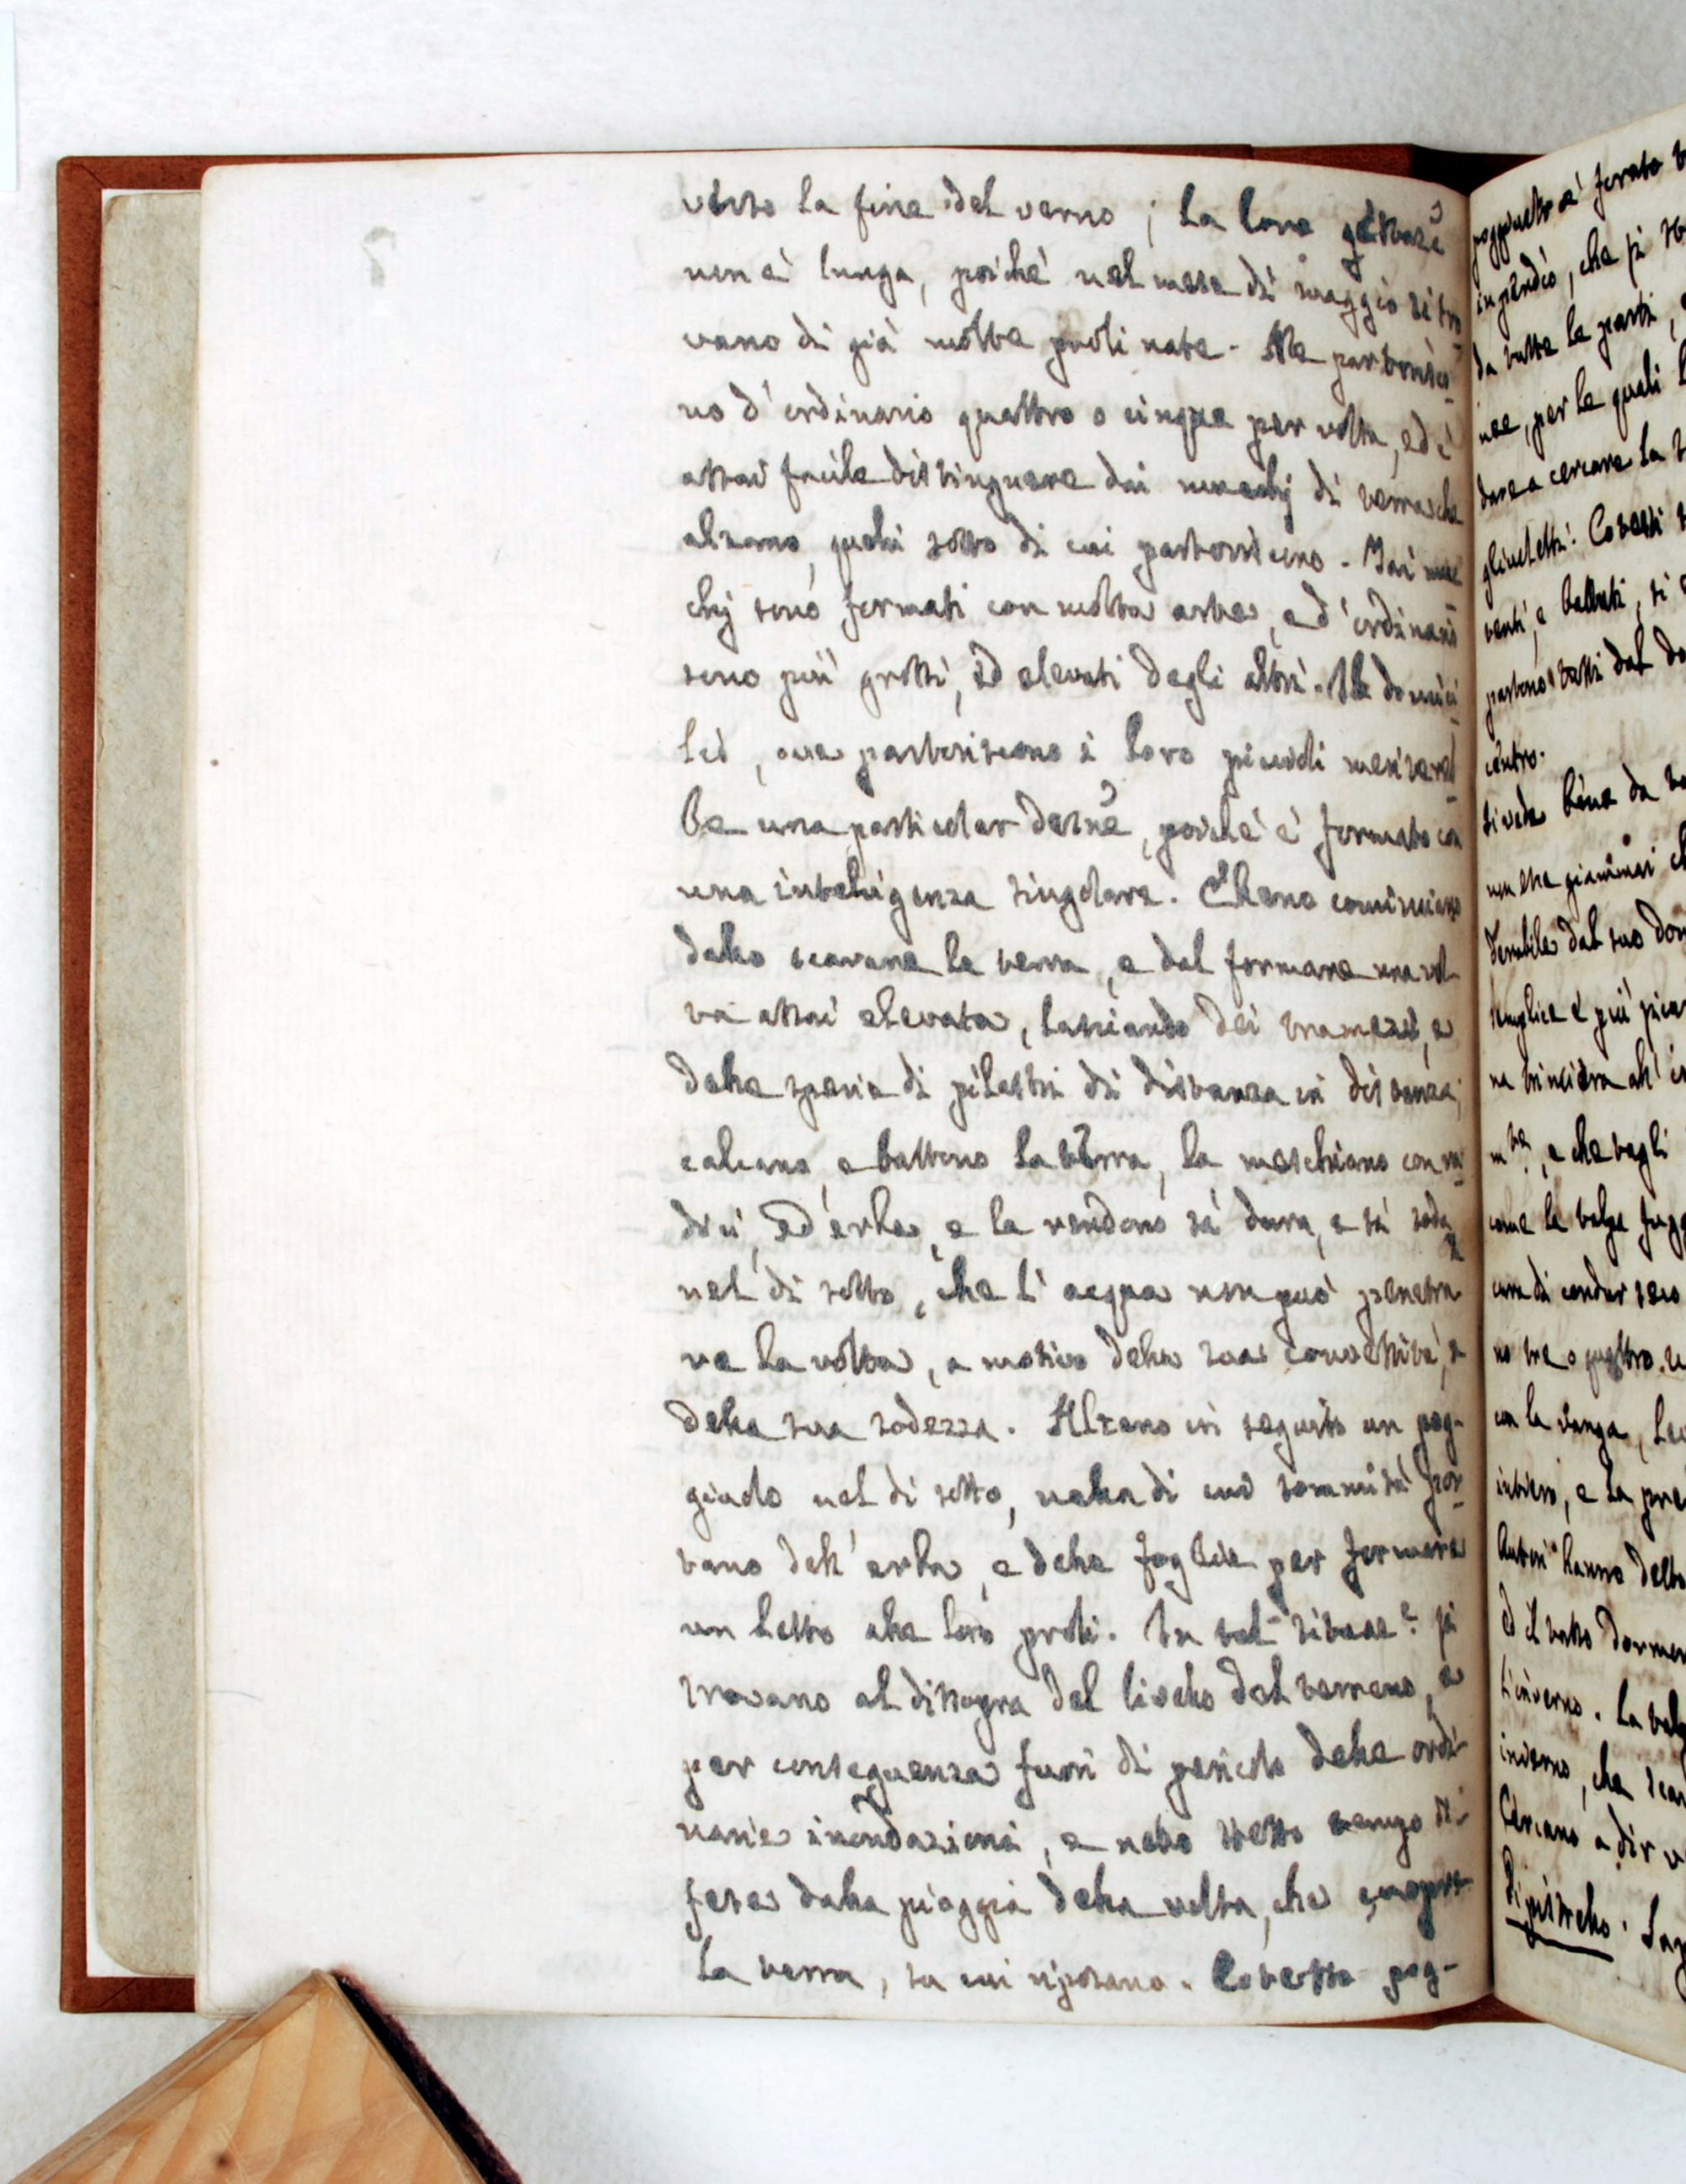 verso la fine del verno; la loro gestaz.e
non è lunga, poiché nel mese di maggio si tro
vano di già molte proli nate. Ne partorisco
no d'ordinario quattro o cinque per volta, ed è
assai facile distinguere dai mucchj di terra che
alzano, quelli sotto di cui partoriscono. Tai muc
chj sono formati con molta arte, e d'ordinario
sono più grossi, ed elevati degli altri. Il domici
lio, ove partoriscono i loro piccioli meritereb
be una particolar descriz.e, poiché è formato con
una intelligenza singolare. Elleno cominciano
dallo scavare la terra, e dal formare una vol
ta assai elevata, lasciando dei tramezzi, e
delle specie di pilastri di distanza in distanza;
calcano, e battono la terra, la meschiano con ra
dici, ed erbe, e la rendono sì dura, e sì soda
nel di sotto, che l'acqua non può penetra
re la volta, a motivo della sua convessità, e
della sua sodezza. Alzano in seguito un pog-
giuolo nel di sotto, nella di cui sommità por
tano dell'erba, e delle foglie per formare
un letto alle loro proli. In tal situaz.e si
trovano al dissopra del livello del terreno, e
per conseguenza fuori di pericolo delle ordi
narie inondazioni, e nello stesso tempo di
fese dalla pioggia della volta, che cuopre
la terra, su cui riposano. Cotesto pog-
poggiuolo è forato
in pendio, che si
da tutte le parti,
nee, per le quali
dare a cercare la
gliuoletti. Cotesti
venti, e battuti, si
partono tutti dal
centro.
si vede bene da
non era giammai
derabile dal suo
semplice è più
na trinciera all'
m.te, e che vegli
come la volpe
cura di condur seco
no tre o quattro
con la vanga,
intiero, e la
Autori hanno detto
ed il tasso
l'inverno. La
inverno, che
Cercano a dir
Pipistrello.